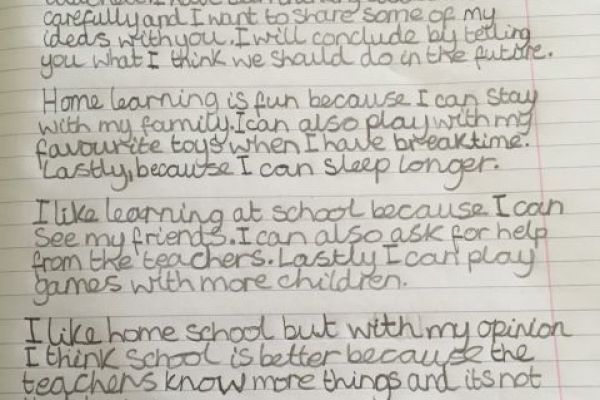 carefully and I want to share some of my
ideas with you. I will conclude by telling
you what I think we should do in the future.
Home learning is fun because I can stay
with my family. I can also play with my
favourite toys when I have breaktime.
Lastly, because I can sleep longer.
I like learning at school because I can
see my friends. I can also ask for help
from the teachers. Lastly I can play
games with more children.
I like home school but with my opinion
I think school is better because the
teachers know more things and its not